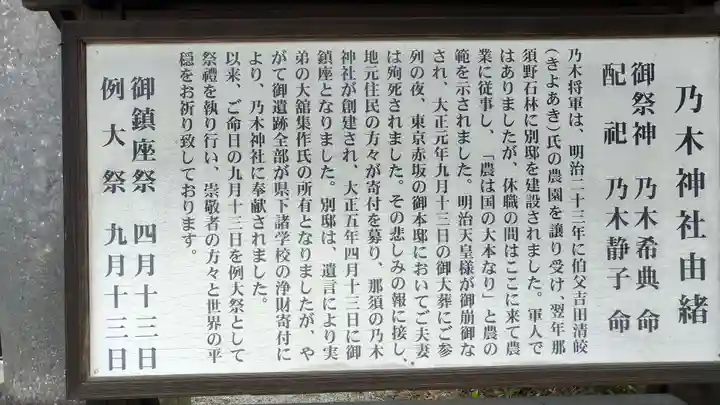 乃木神社由緒
御祭神 乃木希典 命
配祀 乃木静子 命
乃木将軍は、明治二十三年に伯父吉田清皎
(きよあき)氏の農園を譲り受け、翌年那
須野石林に別邸を建設されました。軍人で
はありましたが、休職の間はここに来て農
業に従事し、「農は国の大本なり」と農の
範を示されました。明治天皇様が御崩御な
され、大正元年九月十三日の御大葬にご参
列の夜、東京赤坂の御本邸においてご夫妻
は殉死されました。その悲しみの報に接し、
地元住民の方々が寄付を募り、那須の乃木
神社が創建され、大正五年四月十三日に御
鎮座となりました。別邸は、遺言により実
弟の大舘集作氏の所有となりましたが、や
がて御遺跡全部が県下諸学校の浄財寄付に
より、乃木神社に奉献されました。
以来、ご命日の九月十三日を例大祭として
祭禮を執り行い、崇敬者の方々と世界の平
穏をお祈り致しております。
御鎮座祭 四月十三日
例大祭 九月十三日